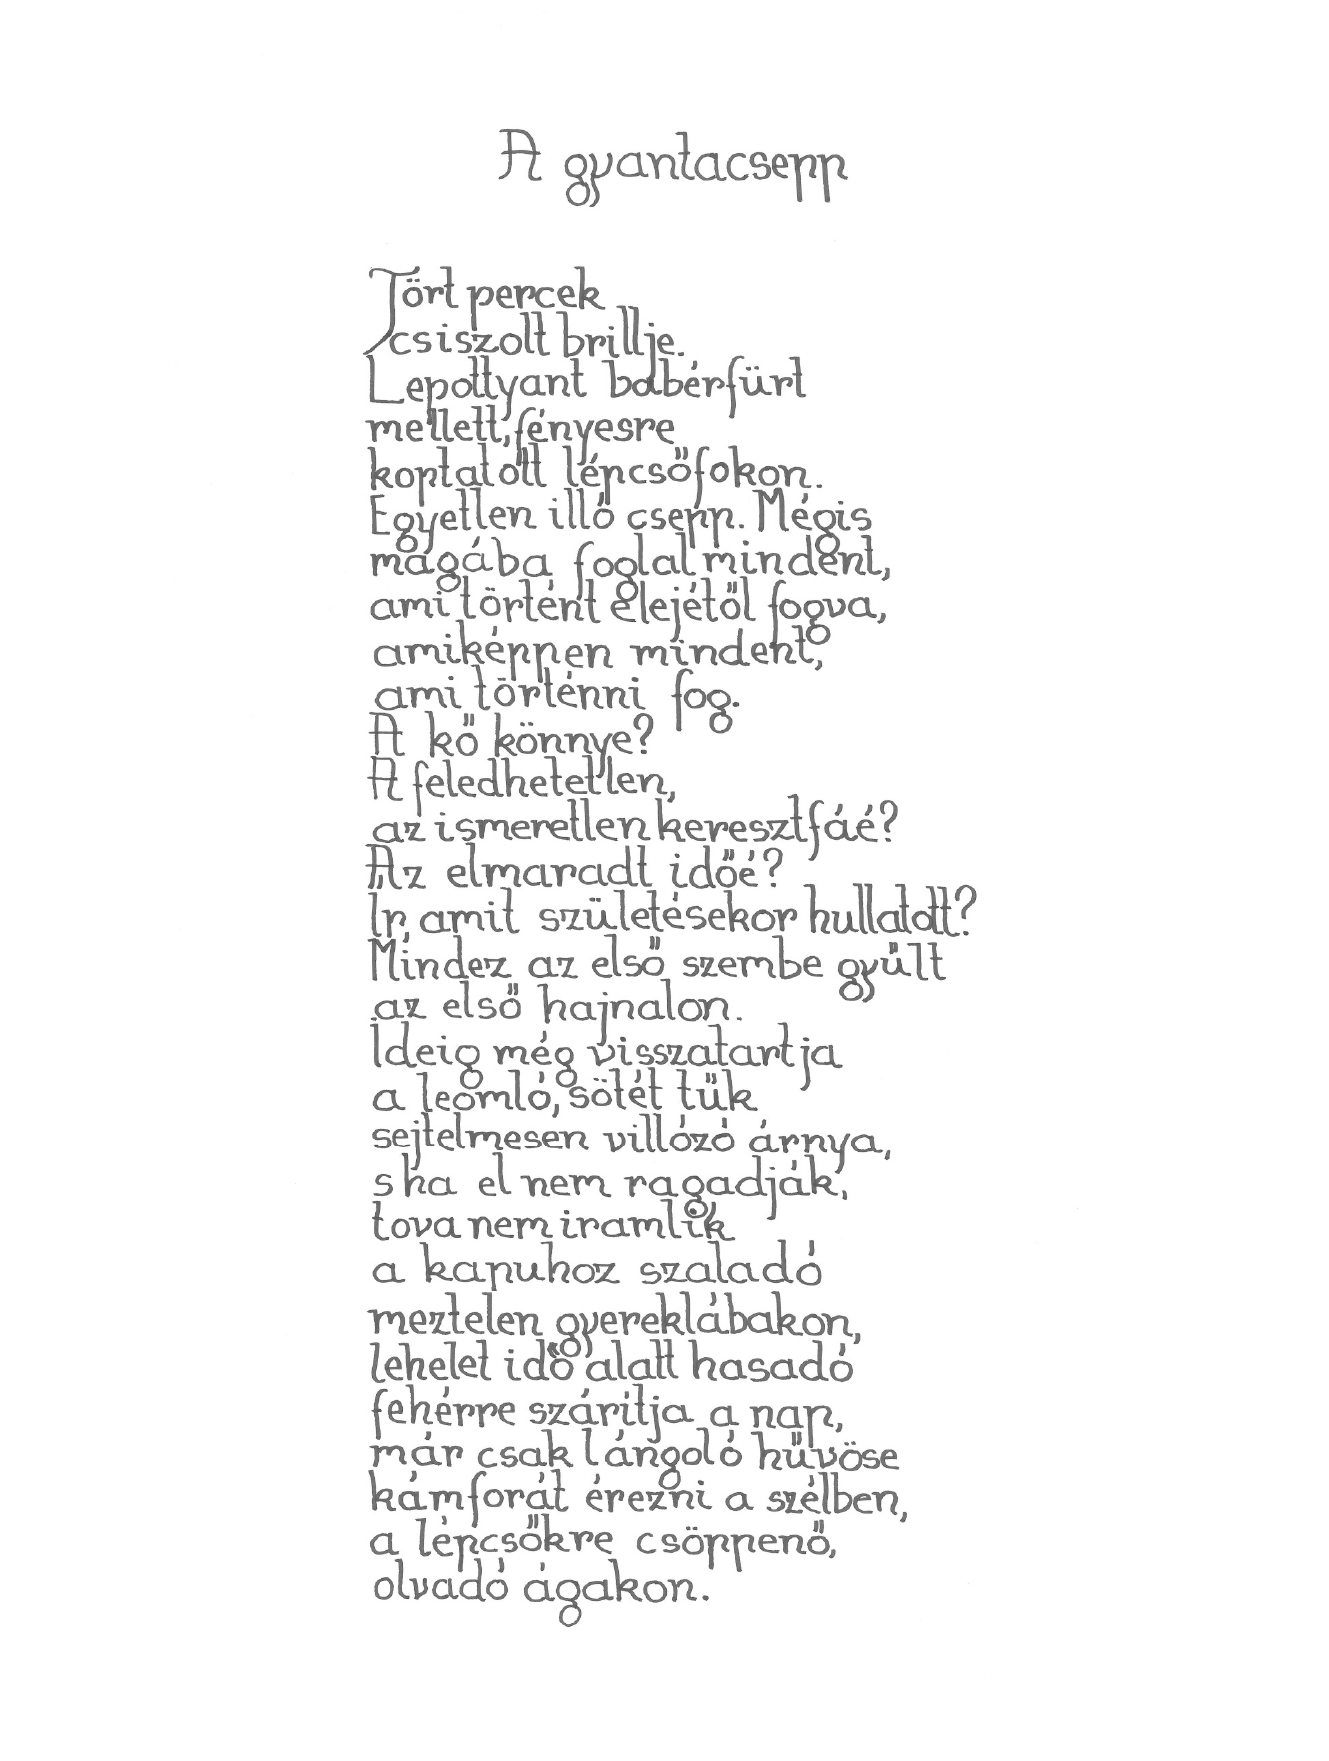 A gyantacsepp
Tört percek
csiszolt brillje.
Lepottyant babérfürt
mellett, fényesre
koptatott lépcsőfokon.
Egyetlen illó csepp. Mégis
magába foglal mindent,
ami történt elejétől fogva,
amiképpen mindent,
ami történni fog.
A kő könnye?
A feledhetetlen,
az ismeretlen keresztfáé?
Az elmaradt időé?
Ír, amit születésekor hullatott?
Mindez az első szembe gyűlt
az első hajnalon.
Ideig még visszatartja
a leomló, sötét tűk
sejtelmesen villózó árnya,
s ha el nem ragadják,
tova nem iramlik
a kapuhoz szaladó
meztelen gyereklábakon,
lehelet idő alatt hasadó
fehérre szárítja a nap,
már csak lángoló hűvöse
kámforát érezni a szélben,
a lépcsőkre csöppenő,
olvadó ágakon.